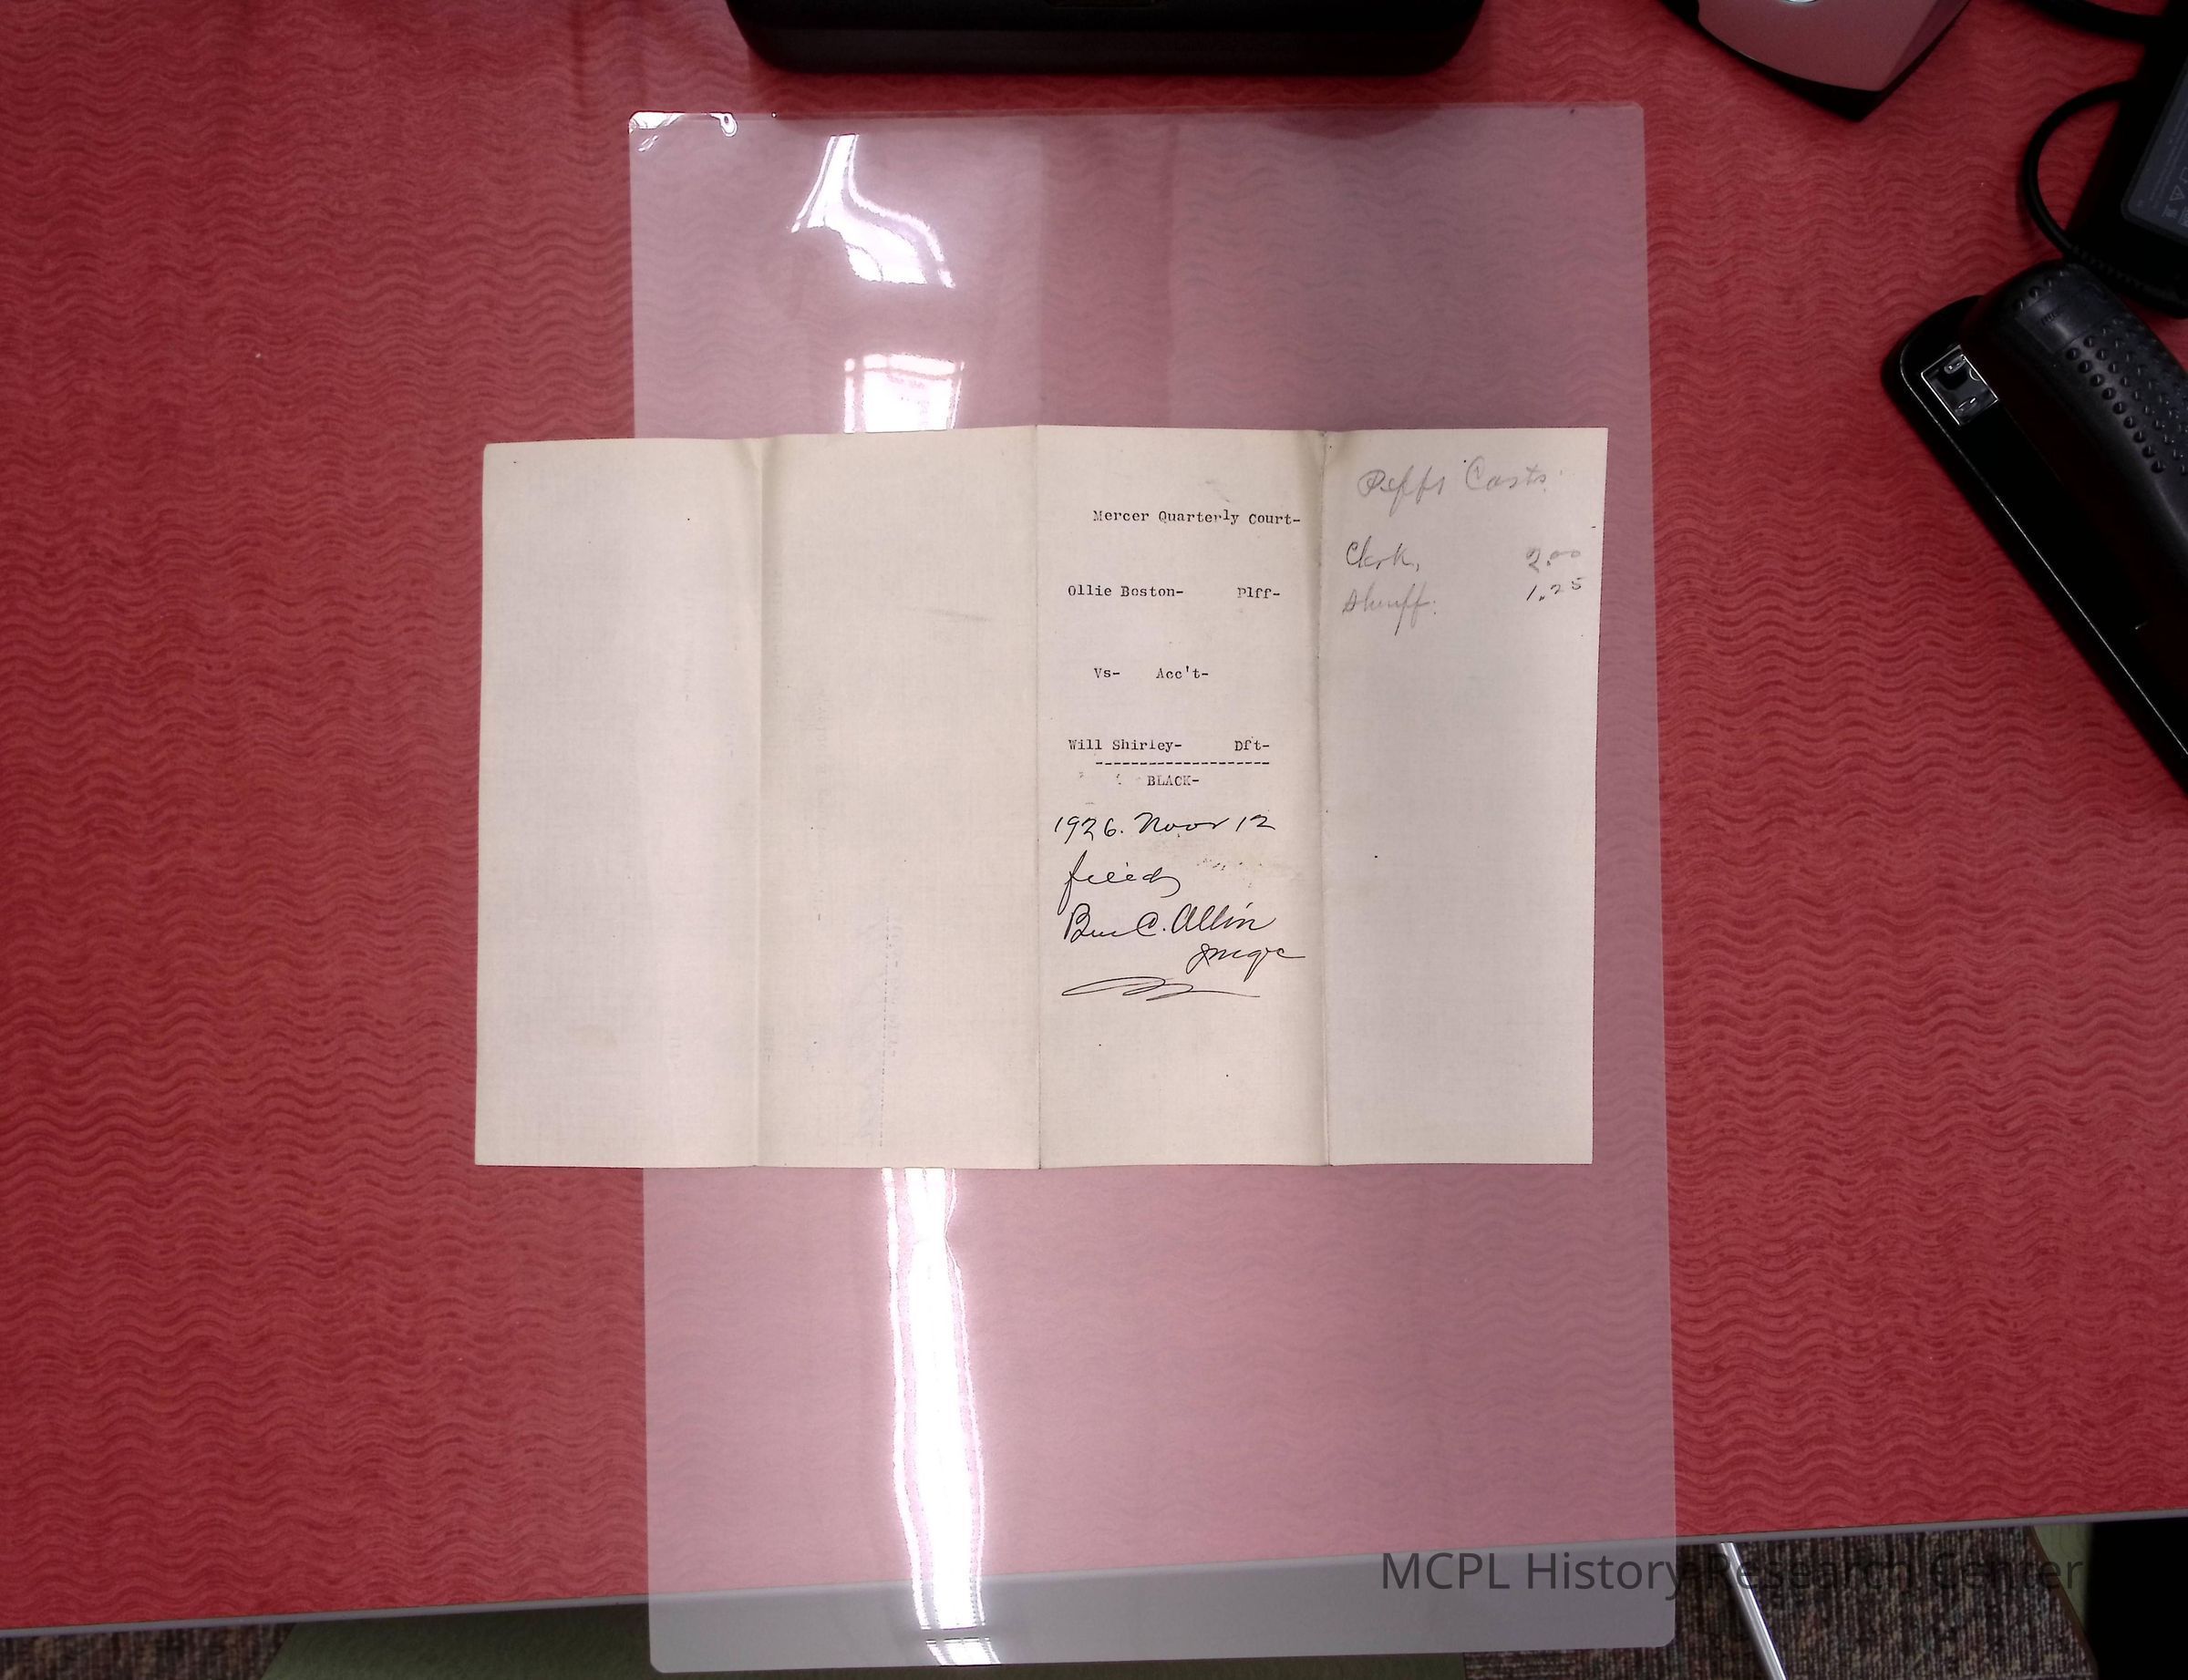 Mercer Quarterly Court-
Ollie Boston- Plff-
Vs- Acc't-
Will Shirley- Dft-
--------------------
BLACK-
1926. Novr 12
filed
Ben C. Allin
Judge
Plffs Costs
Clerk, 2.00
Sheriff. 1.25
MCPL History Research Center